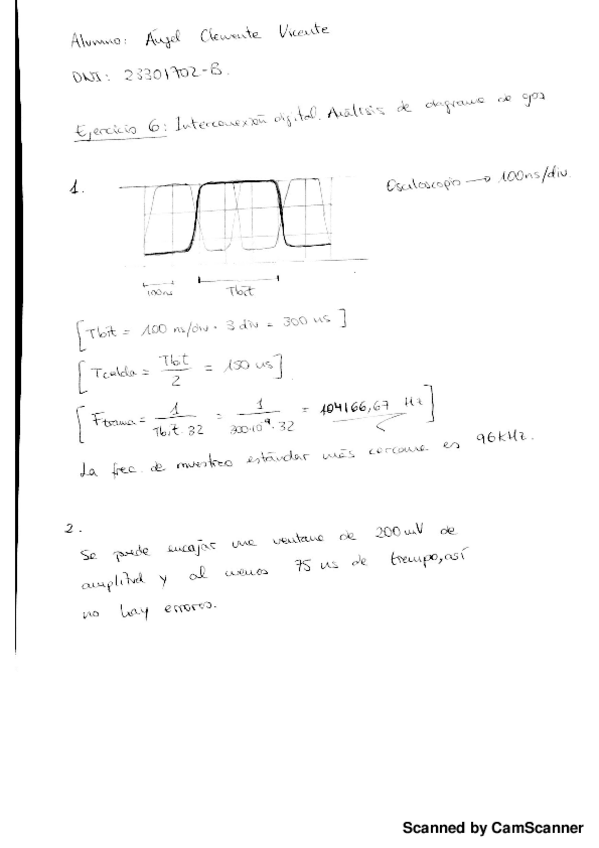 Alumno: Ángel Clemente Vicente
DNI: 23301702-B.
Ejercicio 6: Interconexión digital. Análisis de diagrama de gos
1.
Osciloscopio → 100ns/div.
100ns
Tbit
[Tbit = 100 ns/div · 3 div = 300 ns]
[Tcelda = Tbit / 2 = 150 ns]
[Ftrama = 1 / Tbit · 32 = 1 / 300·10⁻⁹ · 32 = 104166,67 Hz]
La frec. de muestreo estándar más cercana es 96kHz.
2.
Se puede encajar una ventana de 200mV de
amplitud y al menos 75 ns de tiempo, así
no hay errores.
Scanned by CamScanner